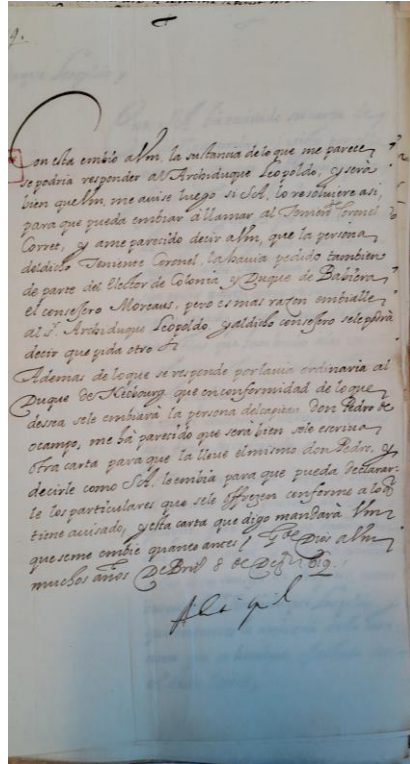 9.
Con esta embio a Vm, la sustancia de lo que me parece
se podria responder al Archiduque Leopoldo, y será
bien que Vm, me avise luego si SA, lo resolviere asi,
para que pueda embiar a llamar al Coronel
Corret, y a me parecido decir a Vm, que la persona
del dicho Teniente Coronel, la havia pedido tambien
de parte del Elector de Colonia y Duque de Babiera
el consejero Moreaus, pero es mas razon embialle
al sr. Archiduque Leopoldo, y al dicho consejero se le podrá
decir que pida otro
Ademas de lo que se responde por la via ordinaria al
Duque de que en conformidad de lo que
dessea se le embiará la persona del capitan don Pedro de
ocampo, me há parecido que será bien se le escriva
otra carta para que la lleve el mismo don Pedro, y
decirle como SA, le embia para que pueda declarar-
le los particulares que se le offrezen conforme a lo q
tiene avisado, y esta carta que digo mandará Vm
que se me embie quanto antes, gde Dios a Vm
muchos años De Brus.s 8 de